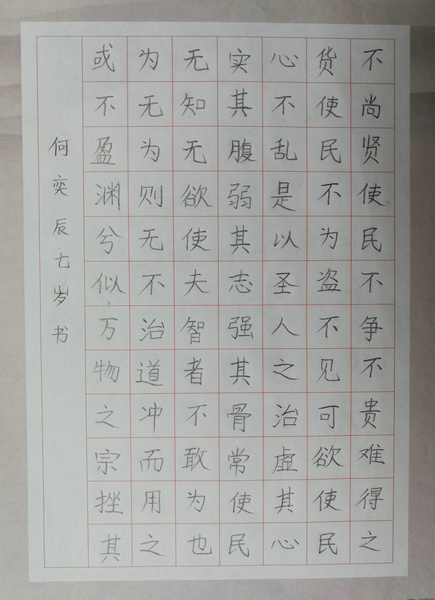 不尚贤使民不争不贵难得之
货使民不为盗不见可欲使民
心不乱是以圣人之治虚其心
实其腹弱其志强其骨常使民
无知无欲使夫智者不敢为也
为无为则无不治道冲而用之
或不盈渊兮似万物之宗挫其
何奕辰七岁书